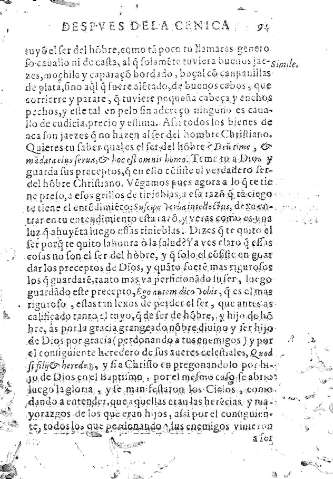 DESPVES DELA CENICA 94
tuyo el ser del hõbre, como tã poco tu llamaras genero
so cauallo ni de casta, al q̃ solamẽte tuviera buenos jae-
Simile.
zes, mochila y caparaçõ bordado, boçal cõ campanillas
de plata, sino aql̃ q̃ fuere alentado, de buenos cabos, que
corriere y parare, q̃ tuviere pequeña cabeça y anchos
pechos, y este tal en pelo sin adereço ninguno es caua-
llo de cudicia, precio y estima. Assi todos los bienes de
aca son jaezes q̃ no hazen al ser del hombre Christiano.
Quieres tu saber qual es el ser del hõbre? Deũ time, &
mãdata eius serua, & hoc est omnis homo. Teme tu a Dios y
guarda sus preceptos, q̃ en esso cõsiste el verdadero ser
del hõbre Christiano. Vẽgamos pues agora a lo q̃ te tie
ne preso, a essos grillos de tinieblas, a essa razõ q̃ tã ciego
te tiene el entẽdimiẽto:
trar en tu entendimiento esta razõ, y veras como es vna
luz q̃ ahuyẽta luego essas tinieblas. Dizes q̃ te quito el
ser porq̃ te quito la honra o la salud? Ya ves claro q̃ essas
cosas no son el ser del hõbre, y q̃ solo el cõsiste en guar
dar los preceptos de Dios, y quãto fuerẽ mas rigurosos
los q̃ guardarẽ, tanto mas va perficionãdo su ser, luego
guardãdo este precepto, Ego autem dico vobis, q̃ es el mas
riguroso, estas tan lexos de perder el ser, que antes as
calificado tanto el tuyo, q̃ de ser de hõbre, y hijo de hõ
bre, as por la gracia grangeado nõbre diuino y ser hijo
de Dios por gracia (perdonando a tus enemigos) y por
el consiguiente heredero de sus aueres celestiales, Quod
si filij & heredes, y si a Christo en pregonandolo por hi-
jo de Dios en el Baptismo, por el mesmo caso se abrio
luego la gloria, y se manifestaron los Cielos, como
dando a entender, que aquellas eran las herẽcias, y ma-
yorazgos de los que eran hijos, assi por el consiguien-
te, todos los que perdonando a sus enemigos vinieron
a ser